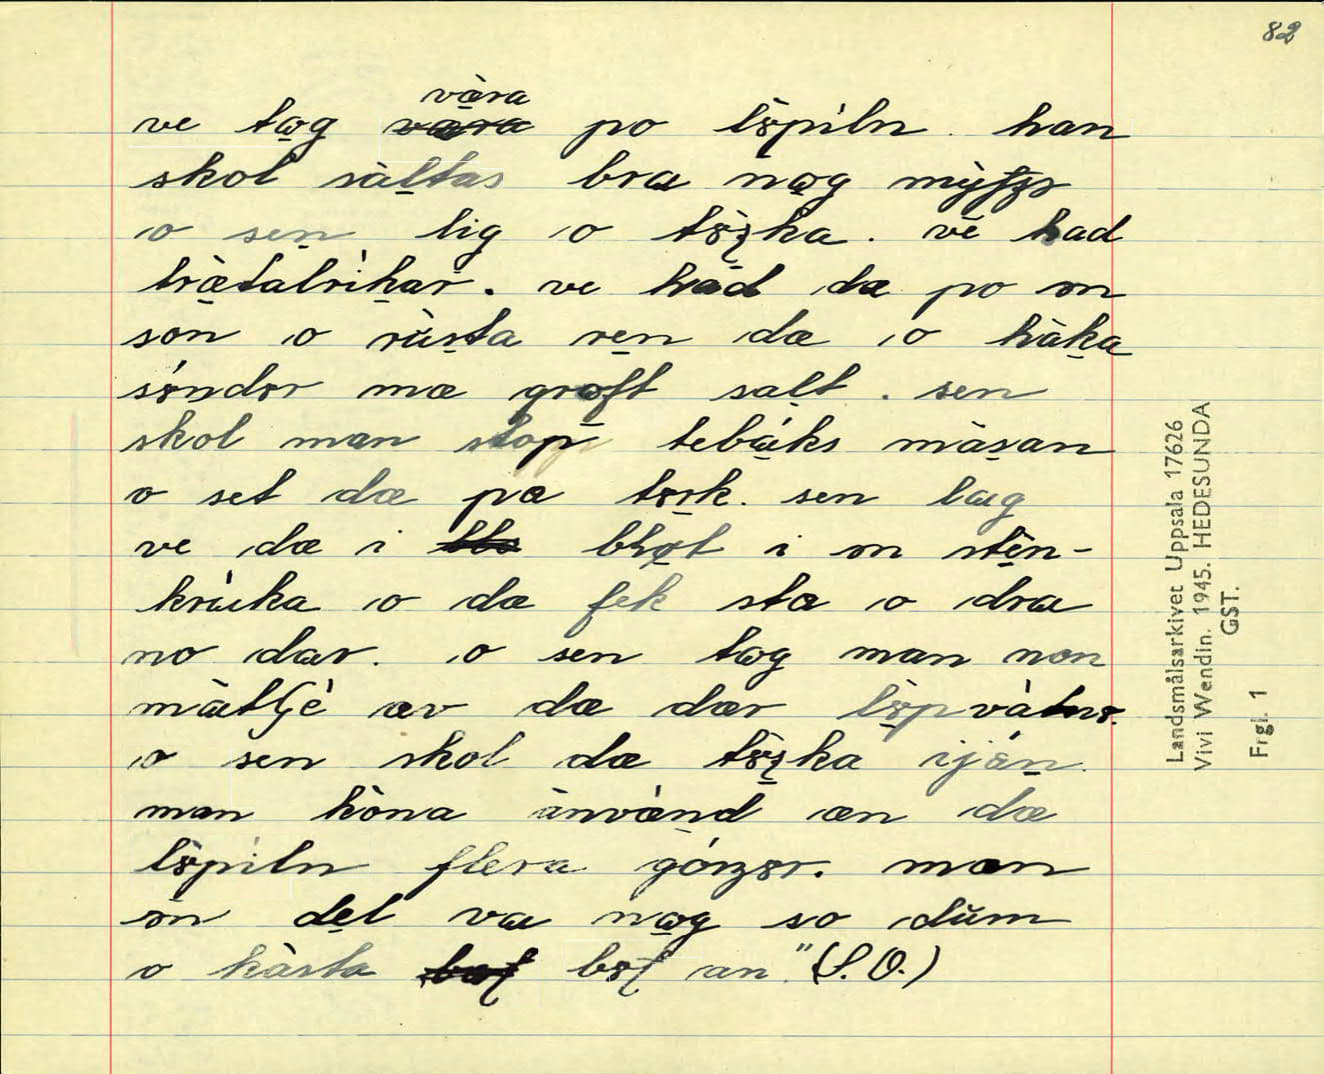 82
ve tog våra po löpiln. han
skol sàltas bra nog mỳſʒə
o sen lig o tö̀ʒka. ve had
træ̀falrikar. ve had dæ po ɷn
sɷn o rùsta ren dæ o hàka
söndər mæ groft salt. sen
skol man stop tebáks màsan
o set dæ pɑ törk. sen læg
ve dæ i blöt i ɷn stèn-
krùka o dæ fek stɑ o dra
no dar. o sen tog man non
av dæ dær löpvàtnə.
o sen skol dæ tö̀ʒka ijɛ́n.
man kòna ànvɛ̀nd æn dæ
lö̀piln flera góŋər. man
ɷn del va nog so dum
o kàsta böʈ an." (S. O.)
Landsmålsarkivet Uppsala 17626
Vivi Wendin. 1945. HEDESUNDA
GST.
Frgl. 1